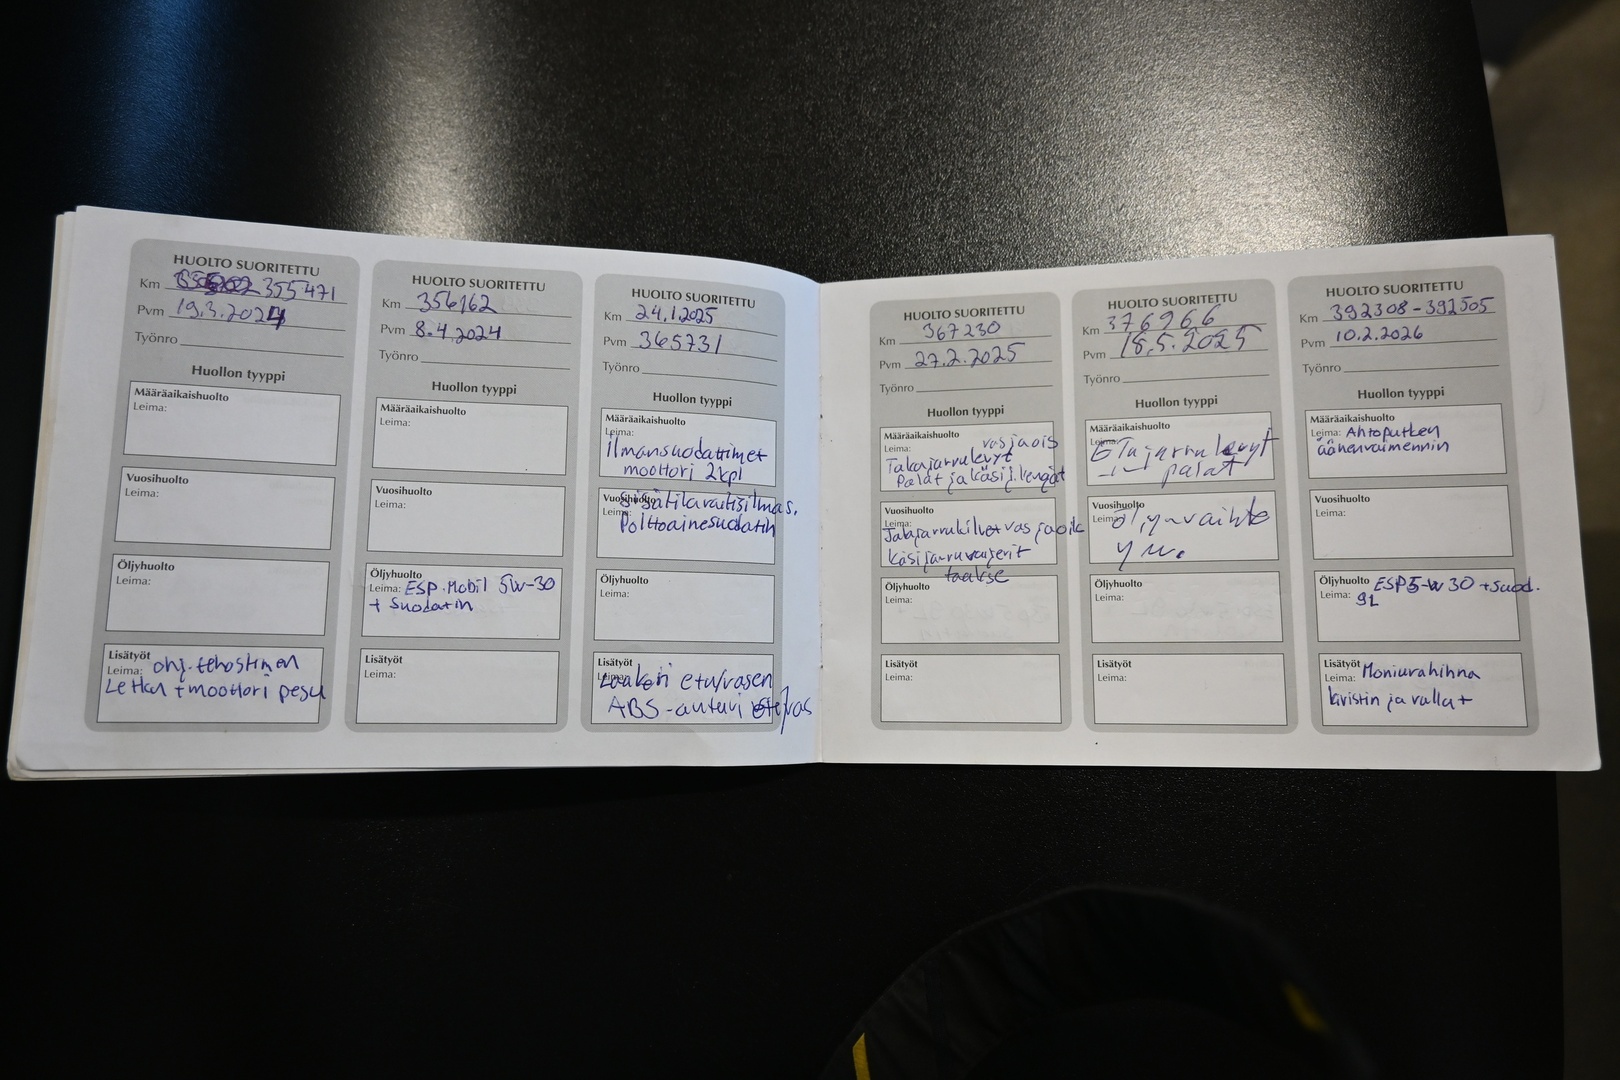 HUOLTO SUORITETTU
Km 355471
Pvm 19.3.2024
Työnro
Huollon tyyppi
Määräaikaishuolto
Leima:
Vuosihuolto
Leima:
Öljyhuolto
Leima:
Lisätyöt
Leima: ohj.tehostimen
Letku + moottori pesu
HUOLTO SUORITETTU
Km 356162
Pvm 8.4.2024
Työnro
Huollon tyyppi
Määräaikaishuolto
Leima:
Vuosihuolto
Leima:
Öljyhuolto
Leima: ESP Mobil 5W-30
+ Suodatin
Lisätyöt
Leima:
HUOLTO SUORITETTU
Km 24.1.2025
Pvm 365731
Työnro
Huollon tyyppi
Määräaikaishuolto
Leima:
ilmansuodattimet
moottori 2kpl
Vuosihuolto
Leima:
Polttoainesuodatin
Öljyhuolto
Leima:
Lisätyöt
Leima:
Laakeri etu/vasen
ABS-anturi /vas
HUOLTO SUORITETTU
Km 367230
Pvm 27.2.2025
Työnro
Huollon tyyppi
Määräaikaishuolto
Leima: vas ja oik
Takajarrulevyt
Palat ja käsij.kengät
Vuosihuolto
Leima:
Takajarrukilvet vas ja oik
käsijarruvaijerit
taakse
Öljyhuolto
Leima:
Lisätyöt
Leima:
HUOLTO SUORITETTU
Km 376966
Pvm 18.5.2025
Työnro
Huollon tyyppi
Määräaikaishuolto
Leima: Etujarrulevyt
-"- palat
Vuosihuolto
Leima: öljynvaihto
ym.
Öljyhuolto
Leima:
Lisätyöt
Leima:
HUOLTO SUORITETTU
Km 392308-392505
Pvm 10.2.2026
Työnro
Huollon tyyppi
Määräaikaishuolto
Leima: Ahtoputken
äänenvaimennin
Vuosihuolto
Leima:
Öljyhuolto ESP 5-W30 +suod.
Leima: 9L
Lisätyöt
Leima: Moniurahihna
kiristin ja rullat